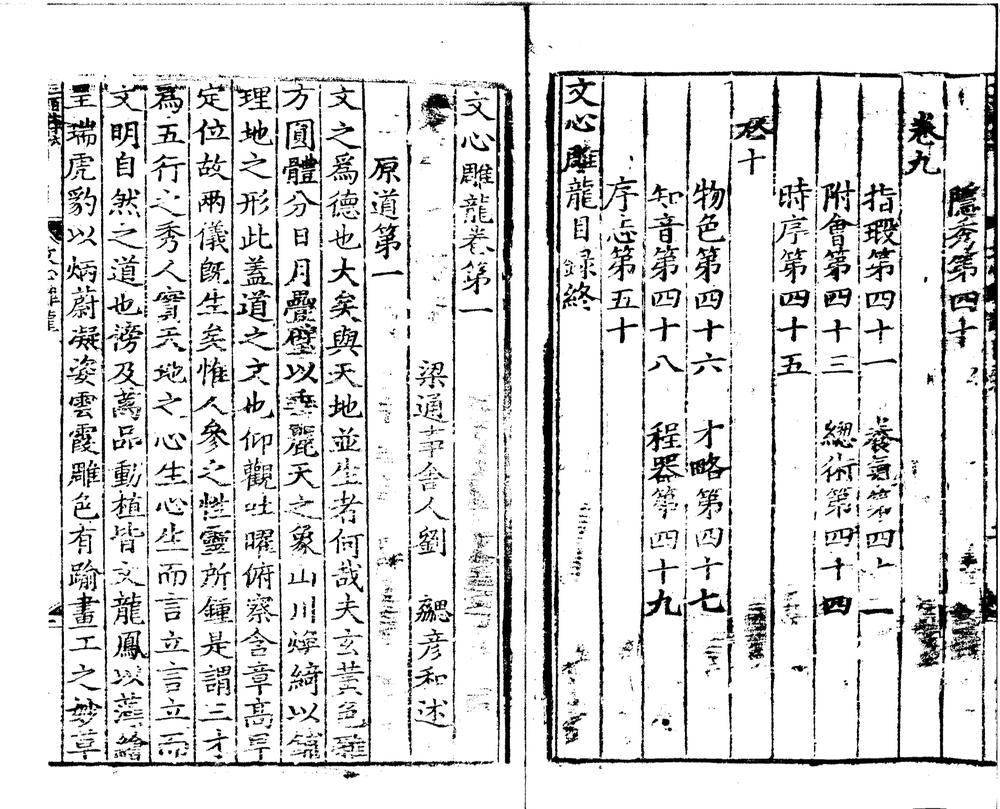 隱秀第四十
卷九
指瑕第四十一　養氣第四十二
附會第四十三　緫術第四十四
時序第四十五
卷十
物色第四十六　才略第四十七
知音第四十八　程器第四十九
序志第五十
文心雕龍目録終
文心雕龍卷第一
梁通事舍人劉　勰彦和述
原道第一
文之爲德也大矣與天地並生者何哉夫玄黃色雜
方圓體分日月疊璧以垂麗天之象山川煥綺以鋪
理地之形此蓋道之文也仰觀吐曜俯察含章高卑
定位故兩儀旣生矣惟人參之性靈所鍾是謂三才
爲五行之秀人實天地之心生心生而言立言立而
文明自然之道也滂及萬品動植皆文龍鳳以藻繪
呈瑞虎豹以炳蔚凝姿雲霞雕色有踰畫工之妙草